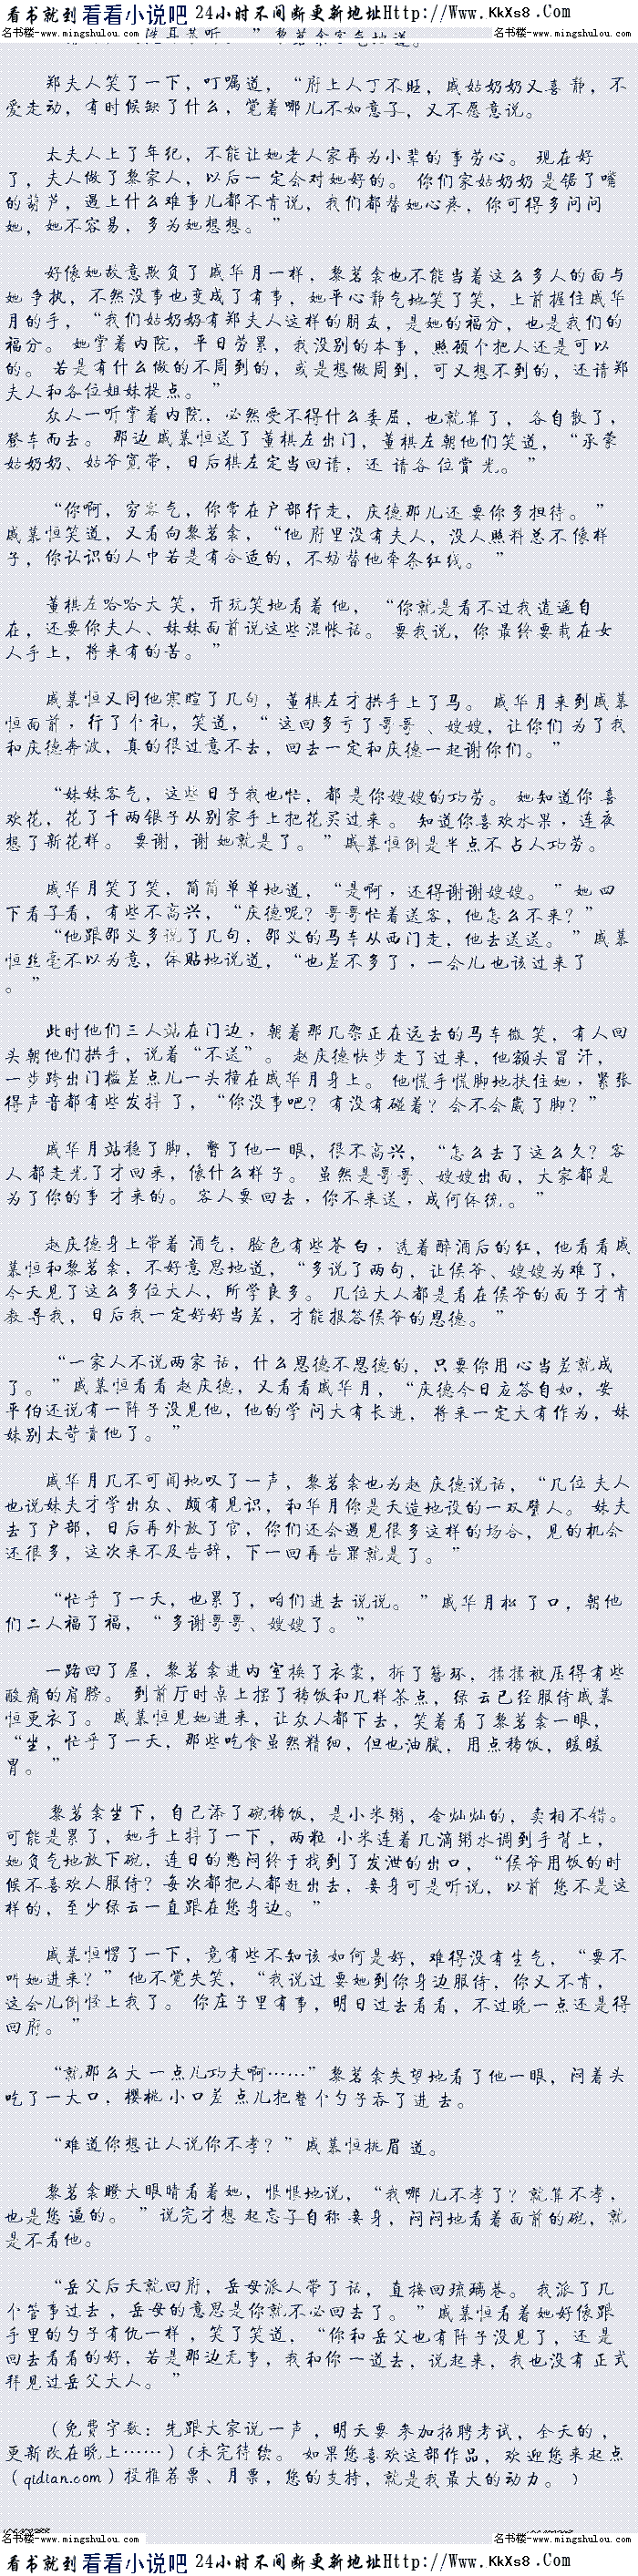 看书就到看看小说吧 24小时不间断更新地址Http://Www.KkXs8.Com
名书楼-www.mingshulou.com 名书楼-www.mingshulou.com
洗耳恭听。”黎茗衾客气地道。
郑夫人笑了一下，叮嘱道，“府上人丁不旺，戚姑奶奶又喜静，不
爱走动，有时候缺了什么，觉着哪儿不如意了，又不愿意说。
太夫人上了年纪，不能让她老人家再为小辈的事劳心。 现在好
了，夫人做了黎家人，以后一定会对她好的。 你们家姑奶奶是锯了嘴
的葫芦，遇上什么难事儿都不肯说，我们都替她心疼，你可得多问问
她，她不容易，多为她想想。”
好像她故意欺负了戚华月一样，黎茗衾也不能当着这么多人的面与
她争执，不然没事也变成了有事，她平心静气地笑了笑，上前握住戚华
月的手，“我们姑奶奶有郑夫人这样的朋友，是她的福分，也是我们的
福分。 她掌着内院，平日劳累，我没别的本事，照顾个把人还是可以
的。 若是有什么做的不周到的，或是想做周到，可又想不到的，还请郑
夫人和各位姐妹提点。”
众人一听掌着内院，必然受不得什么委屈，也就算了，各自散了，
登车而去。 那边戚慕恒送了董棋左出门，董棋左朝他们笑道，“承蒙
姑奶奶、姑爷宽带，日后棋左定当回请，还请各位赏光。”
“你啊，穷客气，你常在户部行走，庆德那儿还要你多担待。”
戚慕恒笑道，又看向黎茗衾，“他府里没有夫人，没人照料总不像样
子，你认识的人中若是有合适的，不妨替他牵条红线。”
董棋左哈哈大笑，开玩笑地看着他，“你就是看不过我逍遥自
在，还要你夫人、妹妹面前说这些混帐话。 要我说，你最终要栽在女
人手上，将来有的苦。”
戚慕恒又同他寒暄了几句，董棋左才拱手上了马。 戚华月来到戚慕
恒面前，行了个礼，笑道，“这回多亏了哥哥、嫂嫂，让你们为了我
和庆德奔波，真的很过意不去，回去一定和庆德一起谢你们。”
“妹妹客气，这些日子我也忙，都是你嫂嫂的功劳。 她知道你喜
欢花，花了千两银子从别家手上把花买过来。 知道你喜欢水果，连夜
想了新花样。 要谢，谢她就是了。”戚慕恒倒是半点不占人功劳。
戚华月笑了笑，简简单单地道，“是啊，还得谢谢嫂嫂。”她四
下看了看，有些不高兴，“庆德呢？哥哥忙着送客，他怎么不来？”
“他跟邵义多说了几句，邵义的马车从西门走，他去送送。”戚慕
恒丝毫不以为意，体贴地说道，“也差不多了，一会儿也该过来了
。”
此时他们三人站在门边，朝着那几架正在远去的马车微笑，有人回
头朝他们拱手，说着“不送”。 赵庆德快步走了过来，他额头冒汗，
一步跨出门槛差点儿一头撞在戚华月身上。 他慌手慌脚地扶住她，紧张
得声音都有些发抖了，“你没事吧？有没有碰着？会不会崴了脚？”
戚华月站稳了脚，瞥了他一眼，很不高兴，“怎么去了这么久？客
人都走光了才回来，像什么样子。 虽然是哥哥、嫂嫂出面，大家都是
为了你的事才来的。 客人要回去，你不来送，成何体统。”
赵庆德身上带着酒气，脸色有些苍白，透着醉酒后的红，他看看戚
慕恒和黎茗衾，不好意思地道，“多说了两句，让侯爷、嫂嫂为难了，
今天见了这么多位大人，所学良多。 几位大人都是看在侯爷的面子才肯
教导我，日后我一定好好当差，才能报答侯爷的恩德。”
“一家人不说两家话，什么恩德不恩德的，只要你用心当差就成
了。”戚慕恒看看赵庆德，又看看戚华月，“庆德今日应答自如，安
平伯还说有一阵子没见他，他的学问大有长进，将来一定大有作为，妹
妹别太苛责他了。”
戚华月几不可闻地叹了一声，黎茗衾也为赵庆德说话，“几位夫人
也说妹夫才学出众、颇有见识，和华月你是天造地设的一双璧人。 妹夫
去了户部，日后再外放了官，你们还会遇见很多这样的场合，见的机会
还很多，这次来不及告辞，下一回再告罪就是了。”
“忙乎了一天，也累了，咱们进去说说。”戚华月松了口，朝他
们二人福了福，“多谢哥哥、嫂嫂了。”
一路回了屋，黎茗衾进内室换了衣裳，拆了簪环，揉揉被压得有些
酸痛的肩膀。 到前厅时桌上摆了稀饭和几样茶点，绿云已经服侍戚慕
恒更衣了。 戚慕恒见她进来，让众人都下去，笑着看了黎茗衾一眼，
“坐，忙乎了一天，那些吃食虽然精细，但也油腻，用点稀饭，暖暖
胃。”
黎茗衾坐下，自己添了碗稀饭，是小米粥，金灿灿的，卖相不错。
可能是累了，她手上抖了一下，两粒小米连着几滴粥水调到手背上，
她负气地放下碗，连日的憋闷终于找到了发泄的出口，“侯爷用饭的时
候不喜欢人服侍？每次都把人都赶出去，妾身可是听说，以前您不是这
样的，至少绿云一直跟在您身边。”
戚慕恒愣了一下，竟有些不知该如何是好，难得没有生气，“要不
叫她进来？”他不觉失笑，“我说过要她到你身边服侍，你又不肯，
这会儿倒怪上我了。 你庄子里有事，明日过去看看，不过晚一点还是得
回府。”
“就那么大一点儿功夫啊……”黎茗衾失望地看了他一眼，闷着头
吃了一大口，樱桃小口差点儿把整个勺子吞了进去。
“难道你想让人说你不孝？”戚慕恒挑眉道。
黎茗衾瞪大眼睛看着她，恨恨地说，“我哪儿不孝了？就算不孝，
也是您逼的。”说完才想起忘了自称妾身，闷闷地看着面前的碗，就
是不看他。
“岳父后天就回府，岳母派人带了话，直接回琉璃巷。 我派了几
个管事过去，岳母的意思是你就不必回去了。”戚慕恒看着她好像跟
手里的勺子有仇一样，笑了笑道，“你和岳父也有阵子没见了，还是
回去看看的好，若是那边无事，我和你一道去，说起来，我也没有正式
拜见过岳父大人。”
（免费字数：先跟大家说一声，明天要参加招聘考试，全天的，
更新改在晚上……）(未完待续。 如果您喜欢这部作品，欢迎您来起点
（qidian.com）投推荐票、月票，您的支持，就是我最大的动力。）
名书楼-www.mingshulou.com 名书楼-www.mingshulou.com
看书就到看看小说吧 24小时不间断更新地址Http://Www.KkXs8.Com